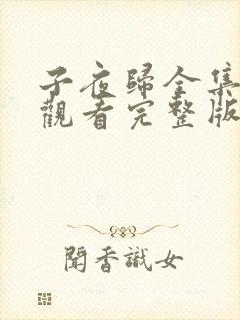 子夜歸全集
觀看完整版
聞香識女